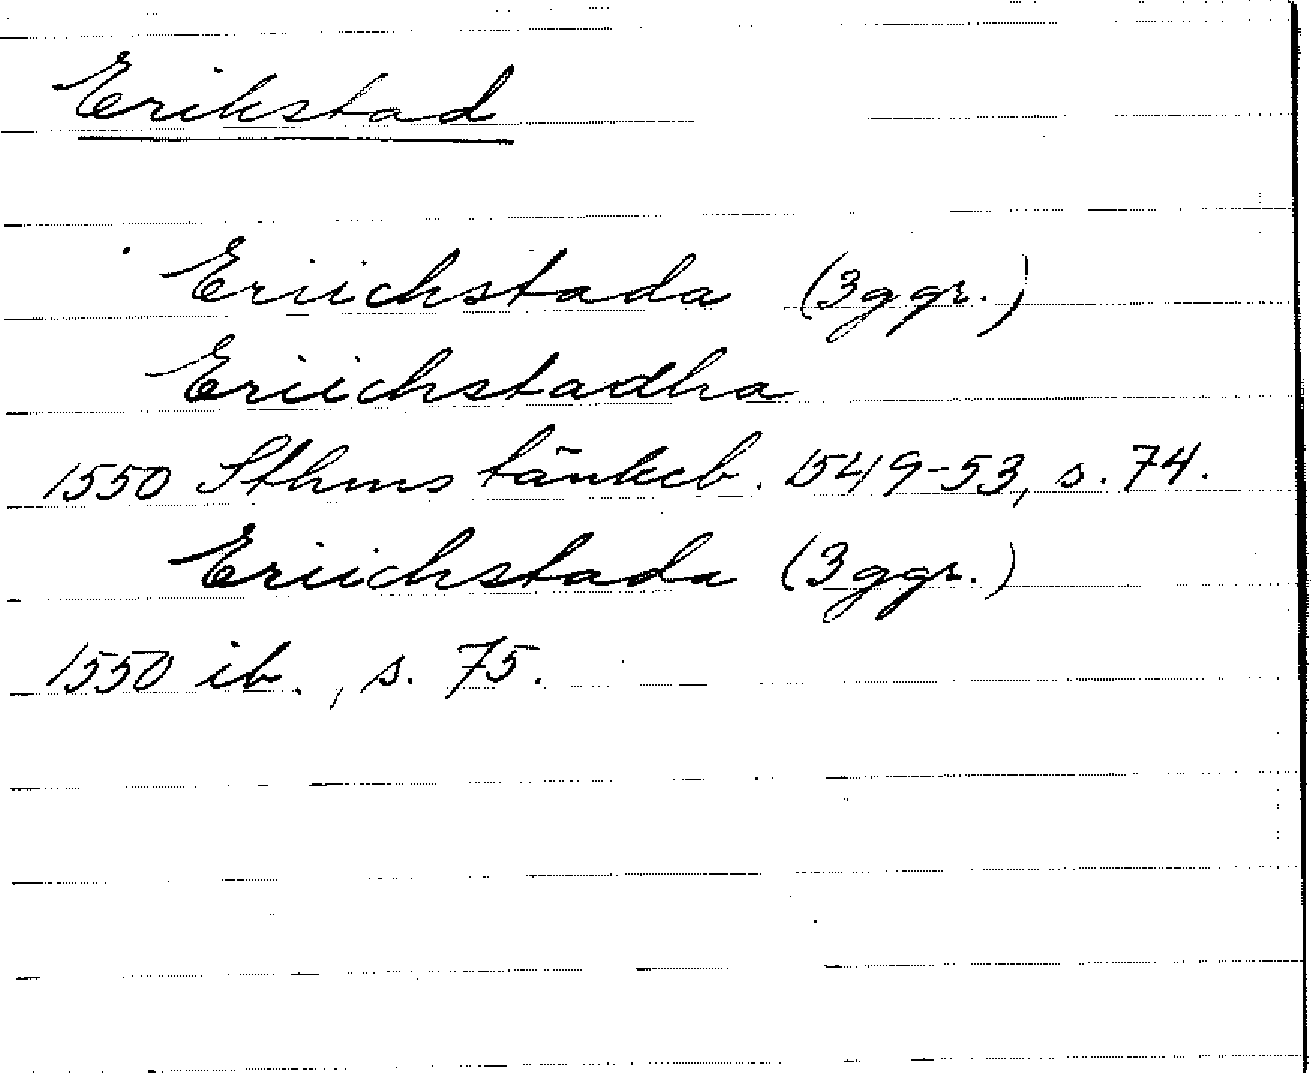 Erikstad
Eriichstada (3ggr.)
Eriichstadha
1550 Sthms tänkeb. 1549-53, s. 74.
Eriichstada (3ggr.)
1550 ib., s. 75.